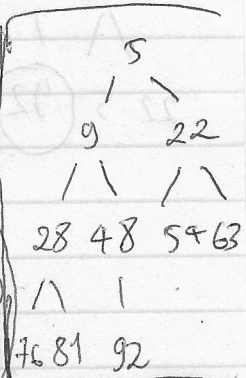 5
9 22
28 48 54 63
76 81 92